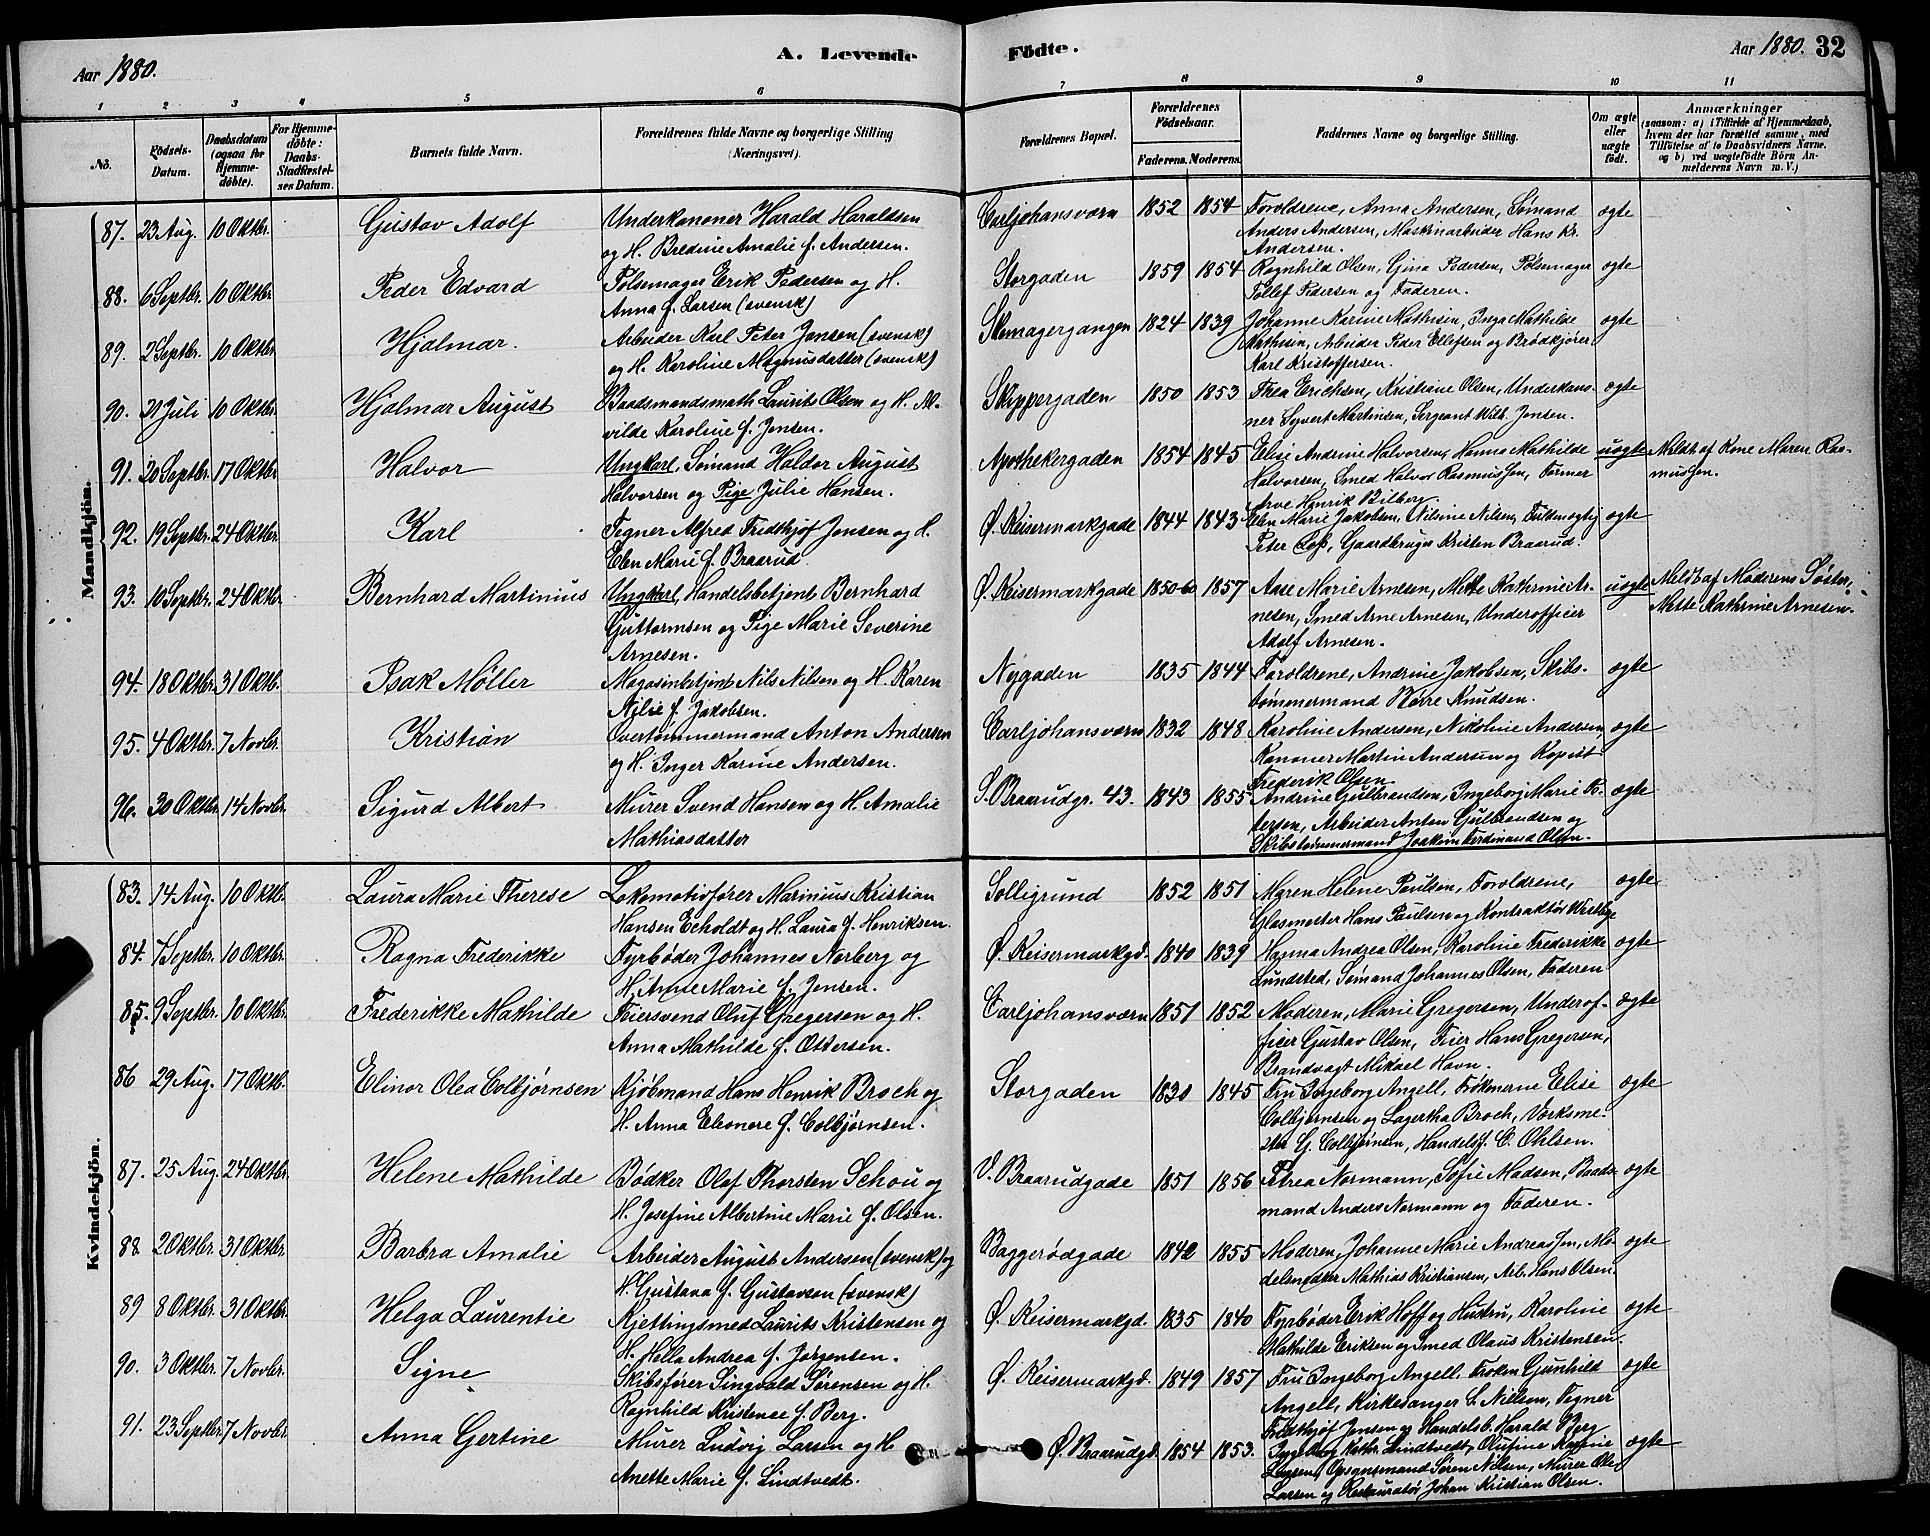 Aar 1880.
A. Levende
Födte.
Aar 1880.
32
1 2 3 4 5 6 7 8 9 10 11
No.
Födsels-Datum.
Daabsdatum (ogsaa for Hjemme-döbte).
For Hjemme-döbte: Daabs-Stadfæstel-ses Datum.
Barnets fulde Navn.
Forældrenes fulde Navne og borgerlige Stilling (Næringsvei).
Forældrenes Bopæl.
Forældrenes Födselsaar.
Faderens. Moderens.
Faddernes Navne og borgerlige Stilling.
Om ægte eller uægte födt.
Anmærkninger
(saasom: a) i Tilfælde af Hjemmedaab, hvem der har forrettet samme, med Tilföielse af to Daabsvidners Navne, og b) ved uægtefödte Börn An-melderens Navn m. V.)
Mandkjön.
87. 23 Aug. 10 Oktbr. Gustav Adolf Underkanoner Harald Haraldsen Carljohansværn 1852 1854 Forældrene, Anna Andersen, Sømand ægte
og H. Bredine Amalie f. Andersen. Anders Andersen, Maskinarbeider Hans Kr.
Andersen.
88. 6 Septbr. 10 Oktbr. Peder Edvard Pølsemager Erik Pedersen og H. Storgaden 1859 1854 Ragnhild Olsen, Gina Pedersen, Pølsemager ægte
Anna f. Larsen (svensk) Tollef Pedersen og Faderen.
89. 2 Septbr. 10 Oktbr. Hjalmar. Arbeider Karl Peter Jensen (svensk) Skomagergangen 1824 1839 Johanne Karine Mathisen, Inga Mathilde ægte
og H. Karoline Magnusdatter (svensk) Mathisen, Arbeider Peder Ellefsen og Brødkjører
Karl Kristoffersen.
90. 21 Juli 10 Oktbr. Hjalmar August Baadsmandsmath Laurits Olsen og H. Al- Skippergaden 1850 1853 Thea Erichsen, Kristiane Olsen, Underkano- ægte
vilde Karoline f. Jensen. ner Syvert Martinsen, Sergeant Wilh. Jensen.
91. 20 Septbr. 17 Oktbr. Halvor Ungkarl, Sømand Haldor August Apothekergaden 1854 1845 Elise Andrine Halvorsen, Hanna Mathilde uægte Meldt af Kone Maren Ras-
Halvorsen og Pige Julie Hansen. Halvorsen, Smed Halvor Rasmussen, Former mussen.
Arve Henrik Bilberg.
92. 19 Septbr. 24 Oktbr. Karl Tegner Alfred Fridthjof Jensen og H. Ø. Keisermarkgade 1844 1843 Elen Marie Jakobsen, Nilsine Nilsen, Fuldmægtig ægte
Elen Marie f. Braarud Peter , Gaardbruger Kristen Braarud.
93. 10 Septbr. 24 Oktbr. Bernhard Martinius Ungkarl, Handelsbetjent Bernhard Ø. Keisermarkgade 1850-60 1857 Aase Marie Arnesen, Mette Kathrine Ar- uægte Meldt af Moderens Søster,
Guttormsen og Pige Marie Severine nesen, Smed Arne Arnesen, Underofficer Mette Kathrine Arnesen.
Arnesen. Adolf Arnesen.
94. 18 Oktbr. 31 Oktb. Isak Møller Magasinbetjent Nils Nilsen og H. Karen Nygaden 1835 1844 Forældrene, Andrine Jakobsen, Skibs- ægte
Nilie f. Jakobsen. tømmermand Knudsen.
95. 4 Oktbr. 7 Novbr. Kristian Overtømmermand Anton Andersen Carljohansværn 1832 1848. Karoline Andersen, Nikoline Andersen, ægte
og H. Inger Karine Andersen. Kanoner Martin Andersen og Kopist
Frederik Olsen.
96. 30 Oktbr. 14 Novbr. Sigurd Albert Murer Svend Hansen og H. Amalie S. Braarudgr. 43. 1843 1855 Andrine Gulbrandsen, Ingeborg Marie Pe- ægte
Mathiasdatter tersen, Arbeider Anton Gulbrandsen og
Skibstømmermand Joakim Ferdinand Olsen.
Kvindekjön.
83. 14 Aug. 10 Oktb. Laura Marie Therese Lokomotivfører Marinius Kristian Solligrund 1852 1851 Maren Helene Paulsen, Forældrene, ægte
Hansen Echoldt og H. Laura f. Henriksen. Glasmester Hans Paulsen og Kontraktør
84. 7 Septbr. 10 Oktbr. Ragna Frederikke Fyrbøder Johannes Norberg og Ø. Keisermarkgd. 1840 1839 Hanna Andrea Olsen, Karoline Frederikke ægte
H. Anne Marie f. Jensen. Lundsted, Sømand Johannes Olsen, Faderen
85. 9 Septbr. 10 Oktbr. Frederikke Mathilde Feiersvend Oluf Gregersen og H. Carljohansværn 1851 1852 Moderen, Marie Gregersen, Underof- ægte
Anna Mathilde f. Ottersen. ficer Gustav Olsen, Feier Hans Gregersen,
Brandvagt Mikael Havn.
86 29 Aug. 17 Oktb. Elinor Olea Colbjørnsen Kjøbmand Hans Henrik Broch og Storgaden 1830 1845 Fru Ingeborg Angell, Frøknerne Elise ægte
H. Anna Eleonore f. Colbjørnsen. Colbjørnsen og Lagertha Broch, Værksme-
ster G. Colbjørnsen, Handelsf. C. Ohlsen.
87. 25 Aug. 24 Oktbr. Helene Mathilde Bødker Olaf Thorsten Schou og V. Braarudgade 1851 1856 Petrea Normann, Sofie Madsen, Baads- ægte
H. Josefine Albertine Marie f. Olsen. mand Anders Normann og Faderen.
88 2 Oktbr. 31 Oktbr. Barbra Amalie Arbeider August Andersen (svensk) og Baggerødgade 1842 1855 Moderen, Johanne Marie Andreassen, Mo- ægte
H. Gustava f. Gustavson (svensk) delsnedker Mathias Kristiansen, Arb. Hans Olsen.
89 8 Oktbr. 31 Oktbr. Helga Laurentie Kjettingsmed Laurits Kristensen og Ø. Keisermarkgd. 1835 1840 Fyrbøder Erik Hoff og Hustru, Karoline ægte
H. Hella Andrea f. Jørgensen. Mathilde Eriksen og Smed Olaus Kristensen.
90. 3 Oktbr. 7 Novbr. Signe Skibsfører Singvald Sørensen og H. Ø. Keisermarkgd. 1849 1857 Fru Ingeborg Angell, Frøken Gunhild ægte
Ragnhild Kristence f. Berg. Angell, Kirkesanger L. Nielsen, Tegner
Fridthjof Jensen og Handelsb. Harald Berg
91. 23 Septbr. 7 Novbr. Anna Gertine Murer Ludvig Larsen og H. Ø. Braarudgd. 1854 1853. Ingeborg Kathr. Lindtvedt, Olufine Karine ægte
Anette Marie f. Lindtvedt. Larsen, Opsynsmand Søren Nilsen, Murer Ole
Larsen og Restauratør Johan Kristian Olsen.